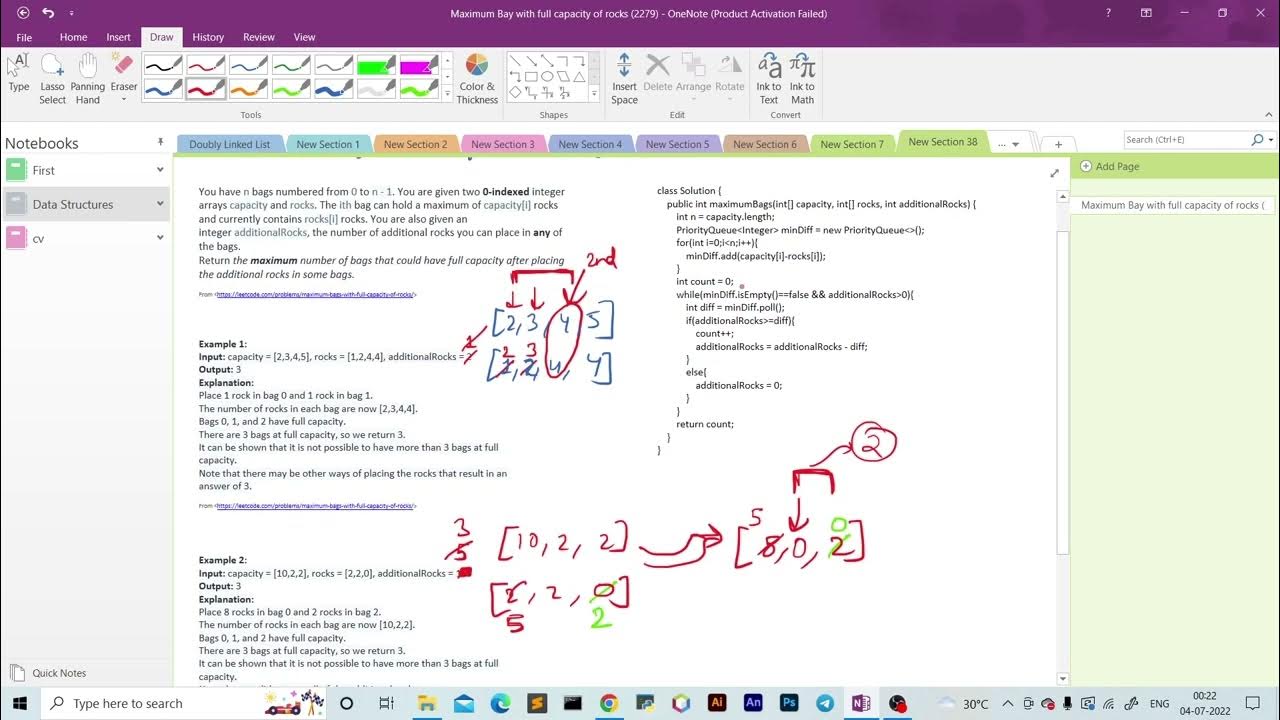 Maximum Bay with full capacity of rocks (2279) - OneNote (Product Activation Failed)
File Home Insert Draw History Review View
Type
Lasso Select
Panning Hand
Eraser
Color & Thickness
Insert Space
Delete
Arrange
Rotate
Ink to Text
Ink to Math
Tools
Shapes
Edit
Convert
Notebooks
Doubly Linked List New Section 1 New Section 2 New Section 3 New Section 4 New Section 5 New Section 6 New Section 7 New Section 38 ... +
Search (Ctrl+E)
First
Data Structures
cv
Quick Notes
Add Page
Maximum Bay with full capacity of rocks (
You have n bags numbered from 0 to n - 1. You are given two 0-indexed integer
arrays capacity and rocks. The ith bag can hold a maximum of capacity[i] rocks
and currently contains rocks[i] rocks. You are also given an
integer additionalRocks, the number of additional rocks you can place in any of
the bags.
Return the maximum number of bags that could have full capacity after placing
the additional rocks in some bags.
From <https://leetcode.com/problems/maximum-bags-with-full-capacity-of-rocks/>
Example 1:
Input: capacity = [2,3,4,5], rocks = [1,2,4,4], additionalRocks =
Output: 3
Explanation:
Place 1 rock in bag 0 and 1 rock in bag 1.
The number of rocks in each bag are now [2,3,4,4].
Bags 0, 1, and 2 have full capacity.
There are 3 bags at full capacity, so we return 3.
It can be shown that it is not possible to have more than 3 bags at full
capacity.
Note that there may be other ways of placing the rocks that result in an
answer of 3.
From <https://leetcode.com/problems/maximum-bags-with-full-capacity-of-rocks/>
Example 2:
Input: capacity = [10,2,2], rocks = [2,2,0], additionalRocks =
Output: 3
Explanation:
Place 8 rocks in bag 0 and 2 rocks in bag 2.
The number of rocks in each bag are now [10,2,2].
Bags 0, 1, and 2 have full capacity.
There are 3 bags at full capacity, so we return 3.
It can be shown that it is not possible to have more than 3 bags at full
2nd
[2, 3, 4, 5]
2 3
4, 4]
3
5 [10, 2, 2]
[2, 2, 0]
5 2
2
5 0
[8, 0, 2]
class Solution {
public int maximumBags(int[] capacity, int[] rocks, int additionalRocks) {
int n = capacity.length;
PriorityQueue<Integer> minDiff = new PriorityQueue<>();
for(int i=0;i<n;i++){
minDiff.add(capacity[i]-rocks[i]);
}
int count = 0;
while(minDiff.isEmpty()==false && additionalRocks>0){
int diff = minDiff.poll();
if(additionalRocks>=diff){
count++;
additionalRocks = additionalRocks - diff;
}
else{
additionalRocks = 0;
}
}
return count;
}
}
Type here to search
Ai An Ps
30°C
ENG
00:22
04-07-2022